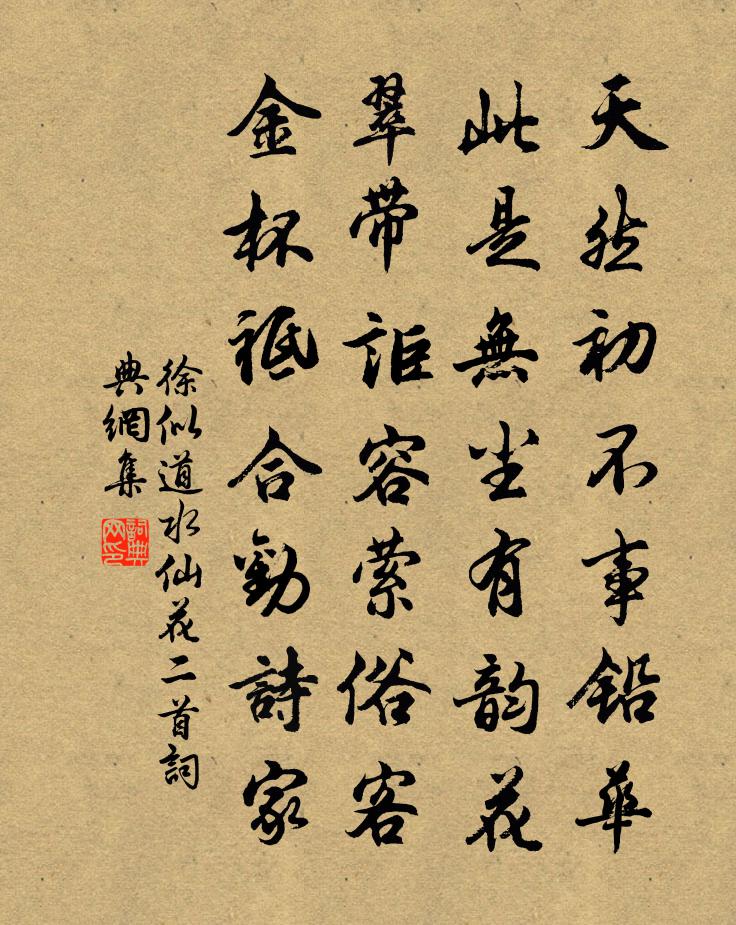 天然初不事鉛華
此是無塵有韵花
翠帶詎容萦俗客
金杯祗合勸詩家
徐似道水仙花二首詞
典網集
詞典
网印